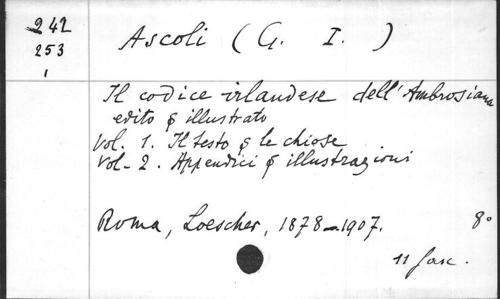 242
253
1
Ascoli (G. I. )
Il codice irlandese dell'Ambrosiana
edito & illustrato
Vol. 1. Il testo & le chiose
Vol. 2. Appendici & illustrazioni
Roma, Loescher, 1878-1907. 8°
11 fasc.